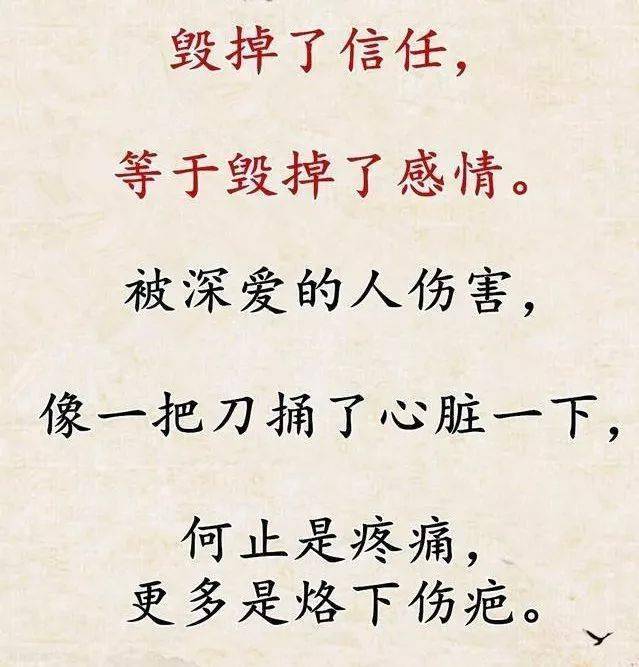 毁掉了信任，
等于毁掉了感情。
被深爱的人伤害，
像一把刀捅了心脏一下，
何止是疼痛，
更多是烙下伤疤。